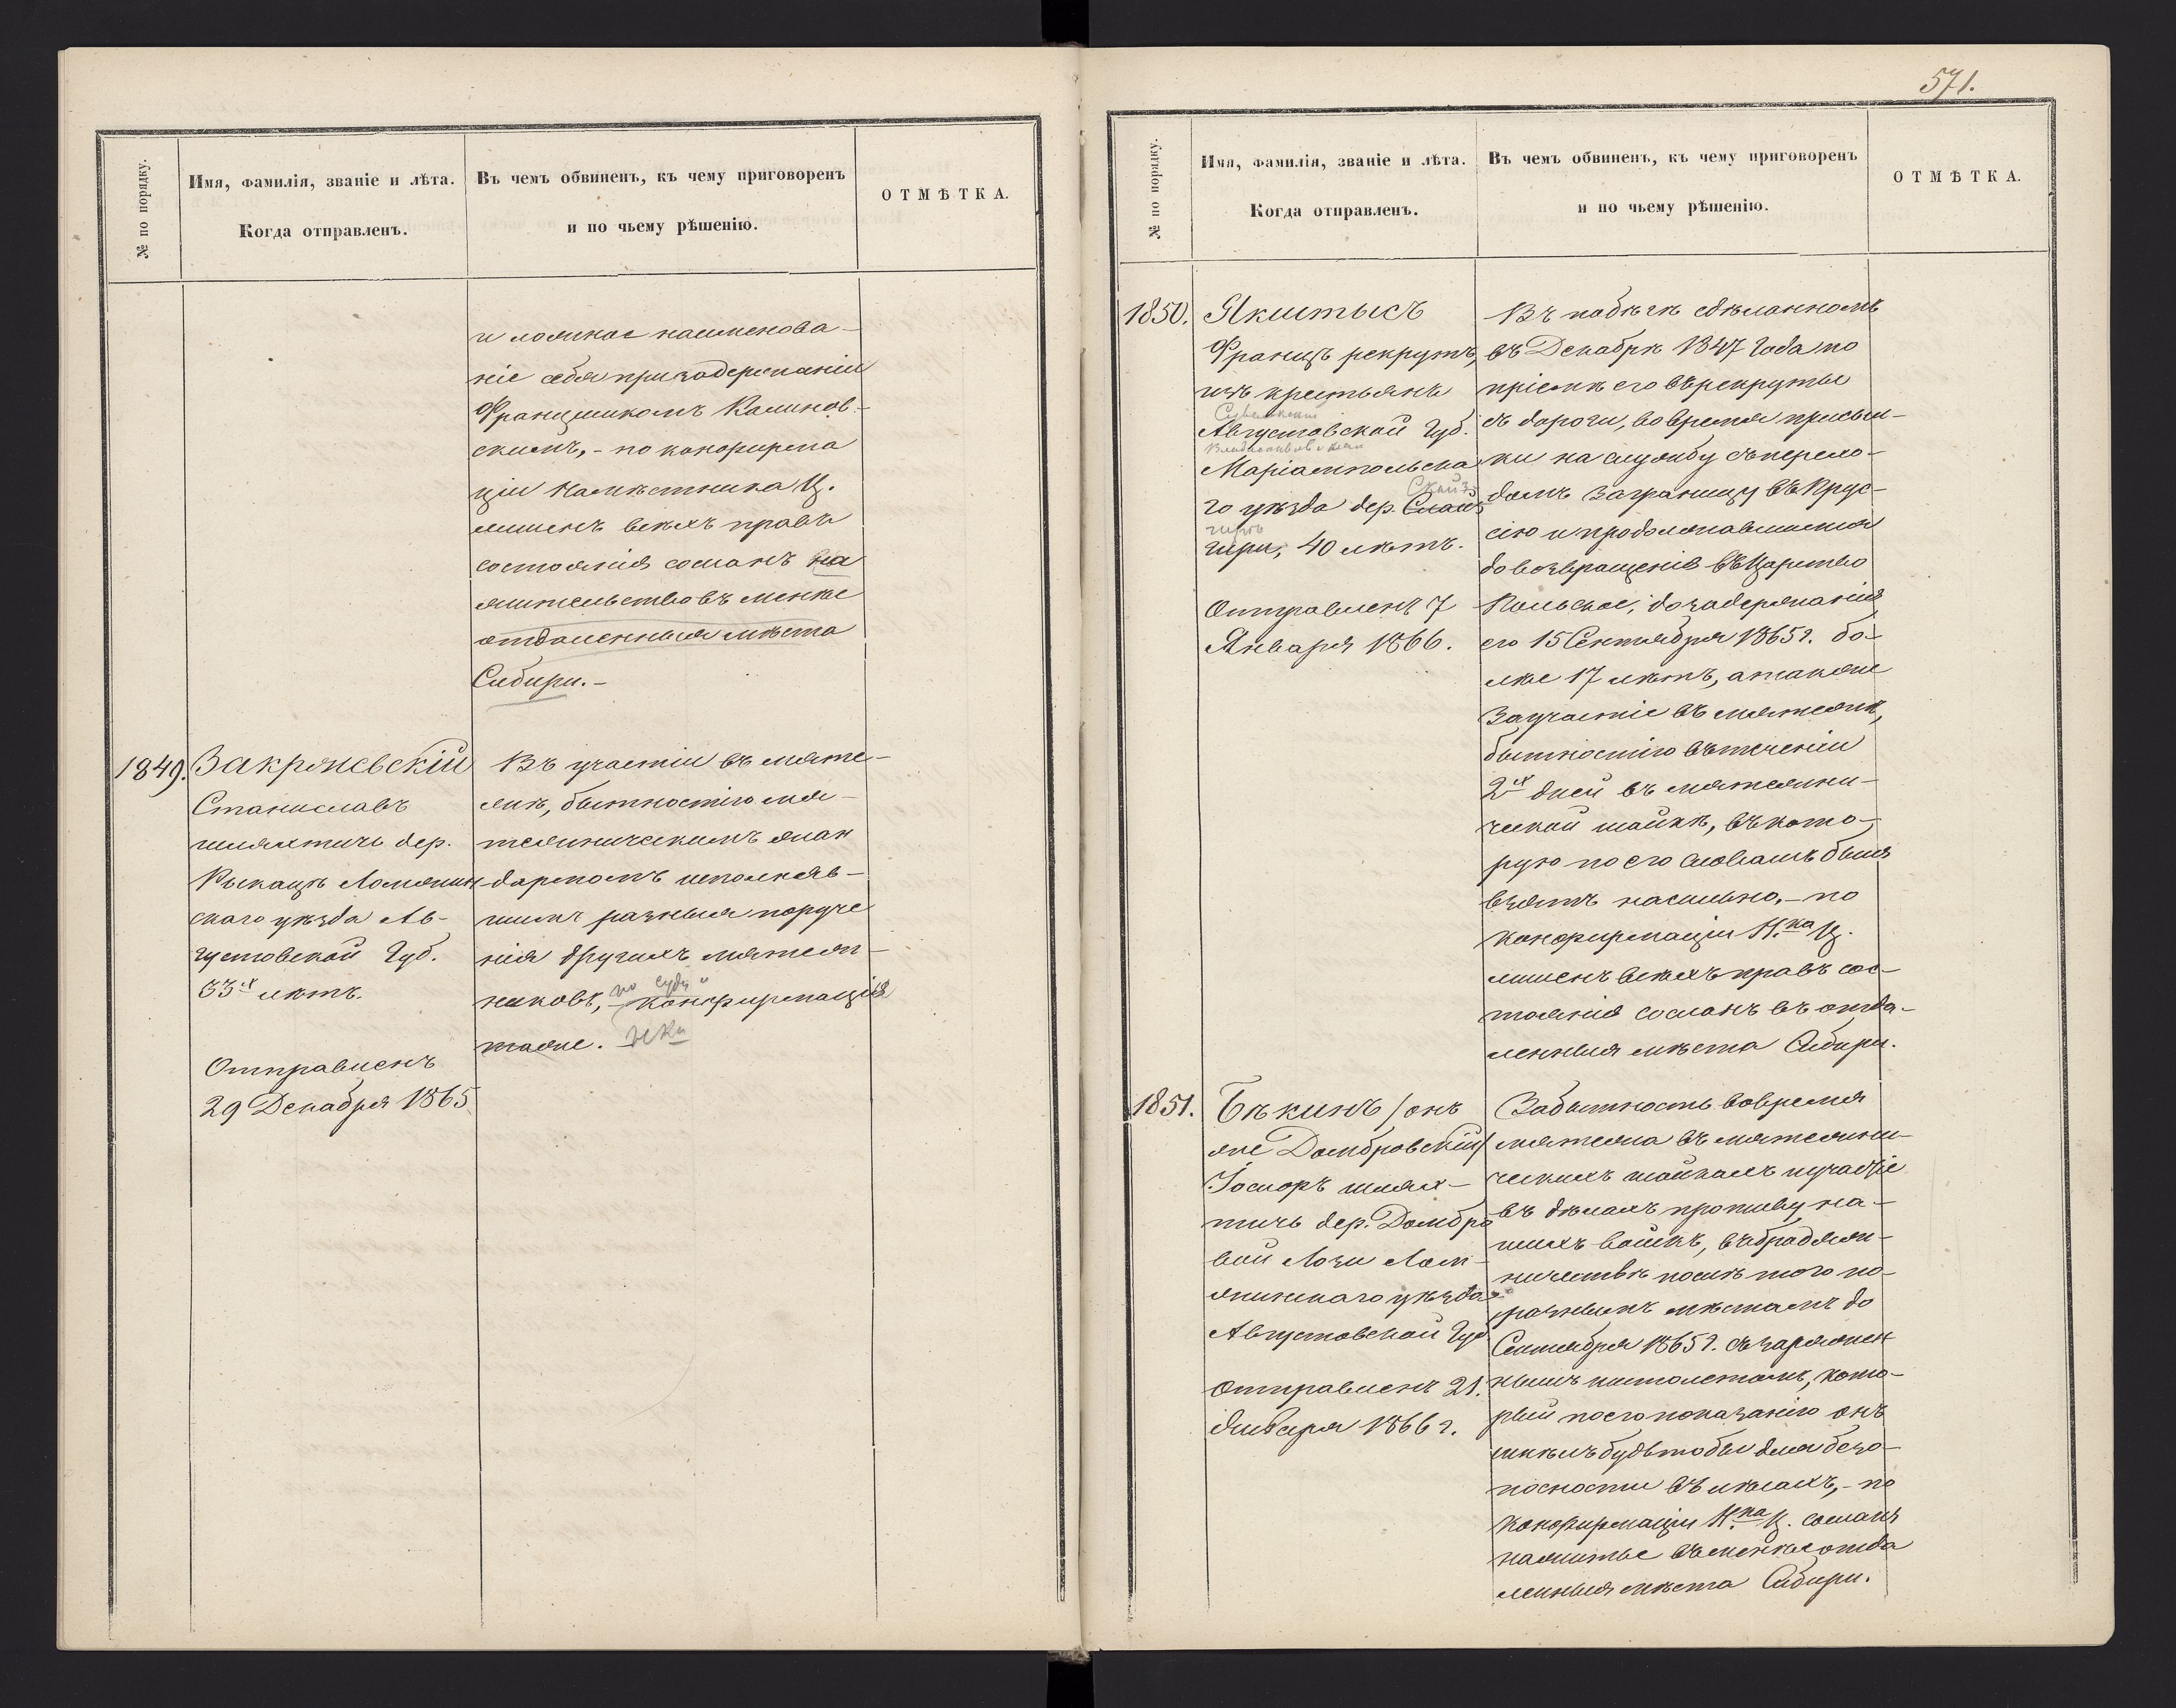 № по порядку.
Имя, фамилія, званіе и лѣта.
Когда отправленъ.
Въ чемъ обвиненъ, къ чему приговоренъ
и по чьему рѣшенію.
ОТМѢТКА.
и ложное наименова-
ніе себя при задержаніи
Францишкомъ Калинов-
скимъ, - по конфирма
ціи Намѣстника Ц.
лишенъ всѣхъ правъ
состоянія сосланъ на
жительство въ менѣе
отдаленныя мѣста
Сибири. -
1849.
Закржевскій
Станиславъ
шляхтичъ дер.
Ломжин
скаго уѣзда Ав-
густовской Губ.
33х лѣтъ.
Отправленъ
29 Декабря 1865
Въ участіи въ мяте-
жѣ, бытностію мя-
тежническимъ жан
дармомъ исполняв-
шимъ разныя поруче
нія другихъ мятеж-
никовъ, - по суду и конфирмація
таже.
571.
№ по порядку.
Имя, фамилія, званіе и лѣта.
Когда отправленъ.
Въ чемъ обвиненъ, къ чему приговоренъ
и по чьему рѣшенію.
ОТМѢТКА.
1850.
Якитысъ
Францъ рекрутъ,
изъ крестьянъ
Сувалкской
Августовской Губ.
Маріампольска
го уѣзда дер.
гири, 40 лѣтъ.
Отправленъ 7
Января 1866.
Въ побѣгѣ сдѣланномъ
въ Декабрѣ 1847 года по
пріемѣ его въ рекруты
съ дороги, во время присыл-
ки на службу съ перехо-
домъ заграницу въ Прус-
сію и продолжавшимся
до возвращенія въ Царство
Польское, до задержанія
его 15 Сентября 1865г. бо-
лѣе 17 лѣтъ, а также
за участіе въ мятежѣ,
бытностію въ теченіи
2х дней въ мятежни-
ческой шайкѣ, въ кото-
рую по его словамъ былъ
взятъ насильно, - по
конфирмаціи Н.ка Ц.
лишенъ всѣхъ правъ сос-
тоянія сосланъ въ отда-
ленныя мѣста Сибири.
1851.
Бѣкинъ /онъ
же Домбровскій/
шлях-
тичъ дер. Домбро
вой Лом-
жинскаго уѣзда
Августовской Губ.
Отправленъ 21.
Января 1866 г.
За бытность во время
мятежа въ мятежни-
ческихъ шайкахъ и участіе
въ дѣлахъ противу на-
шихъ войскъ, въ бродяж-
ничествѣ послѣ того по
разнымъ мѣстамъ до
Сентября 1865г. съ заряжен
нымъ пистолетомъ, кото-
рый по его показанію онъ
имѣлъ будьто бы для безо-
пасности въ лѣсахъ, - по
конфирмаціи Н.ка Ц. сосланъ
на житье въ менѣе отда
ленныя мѣста Сибири.